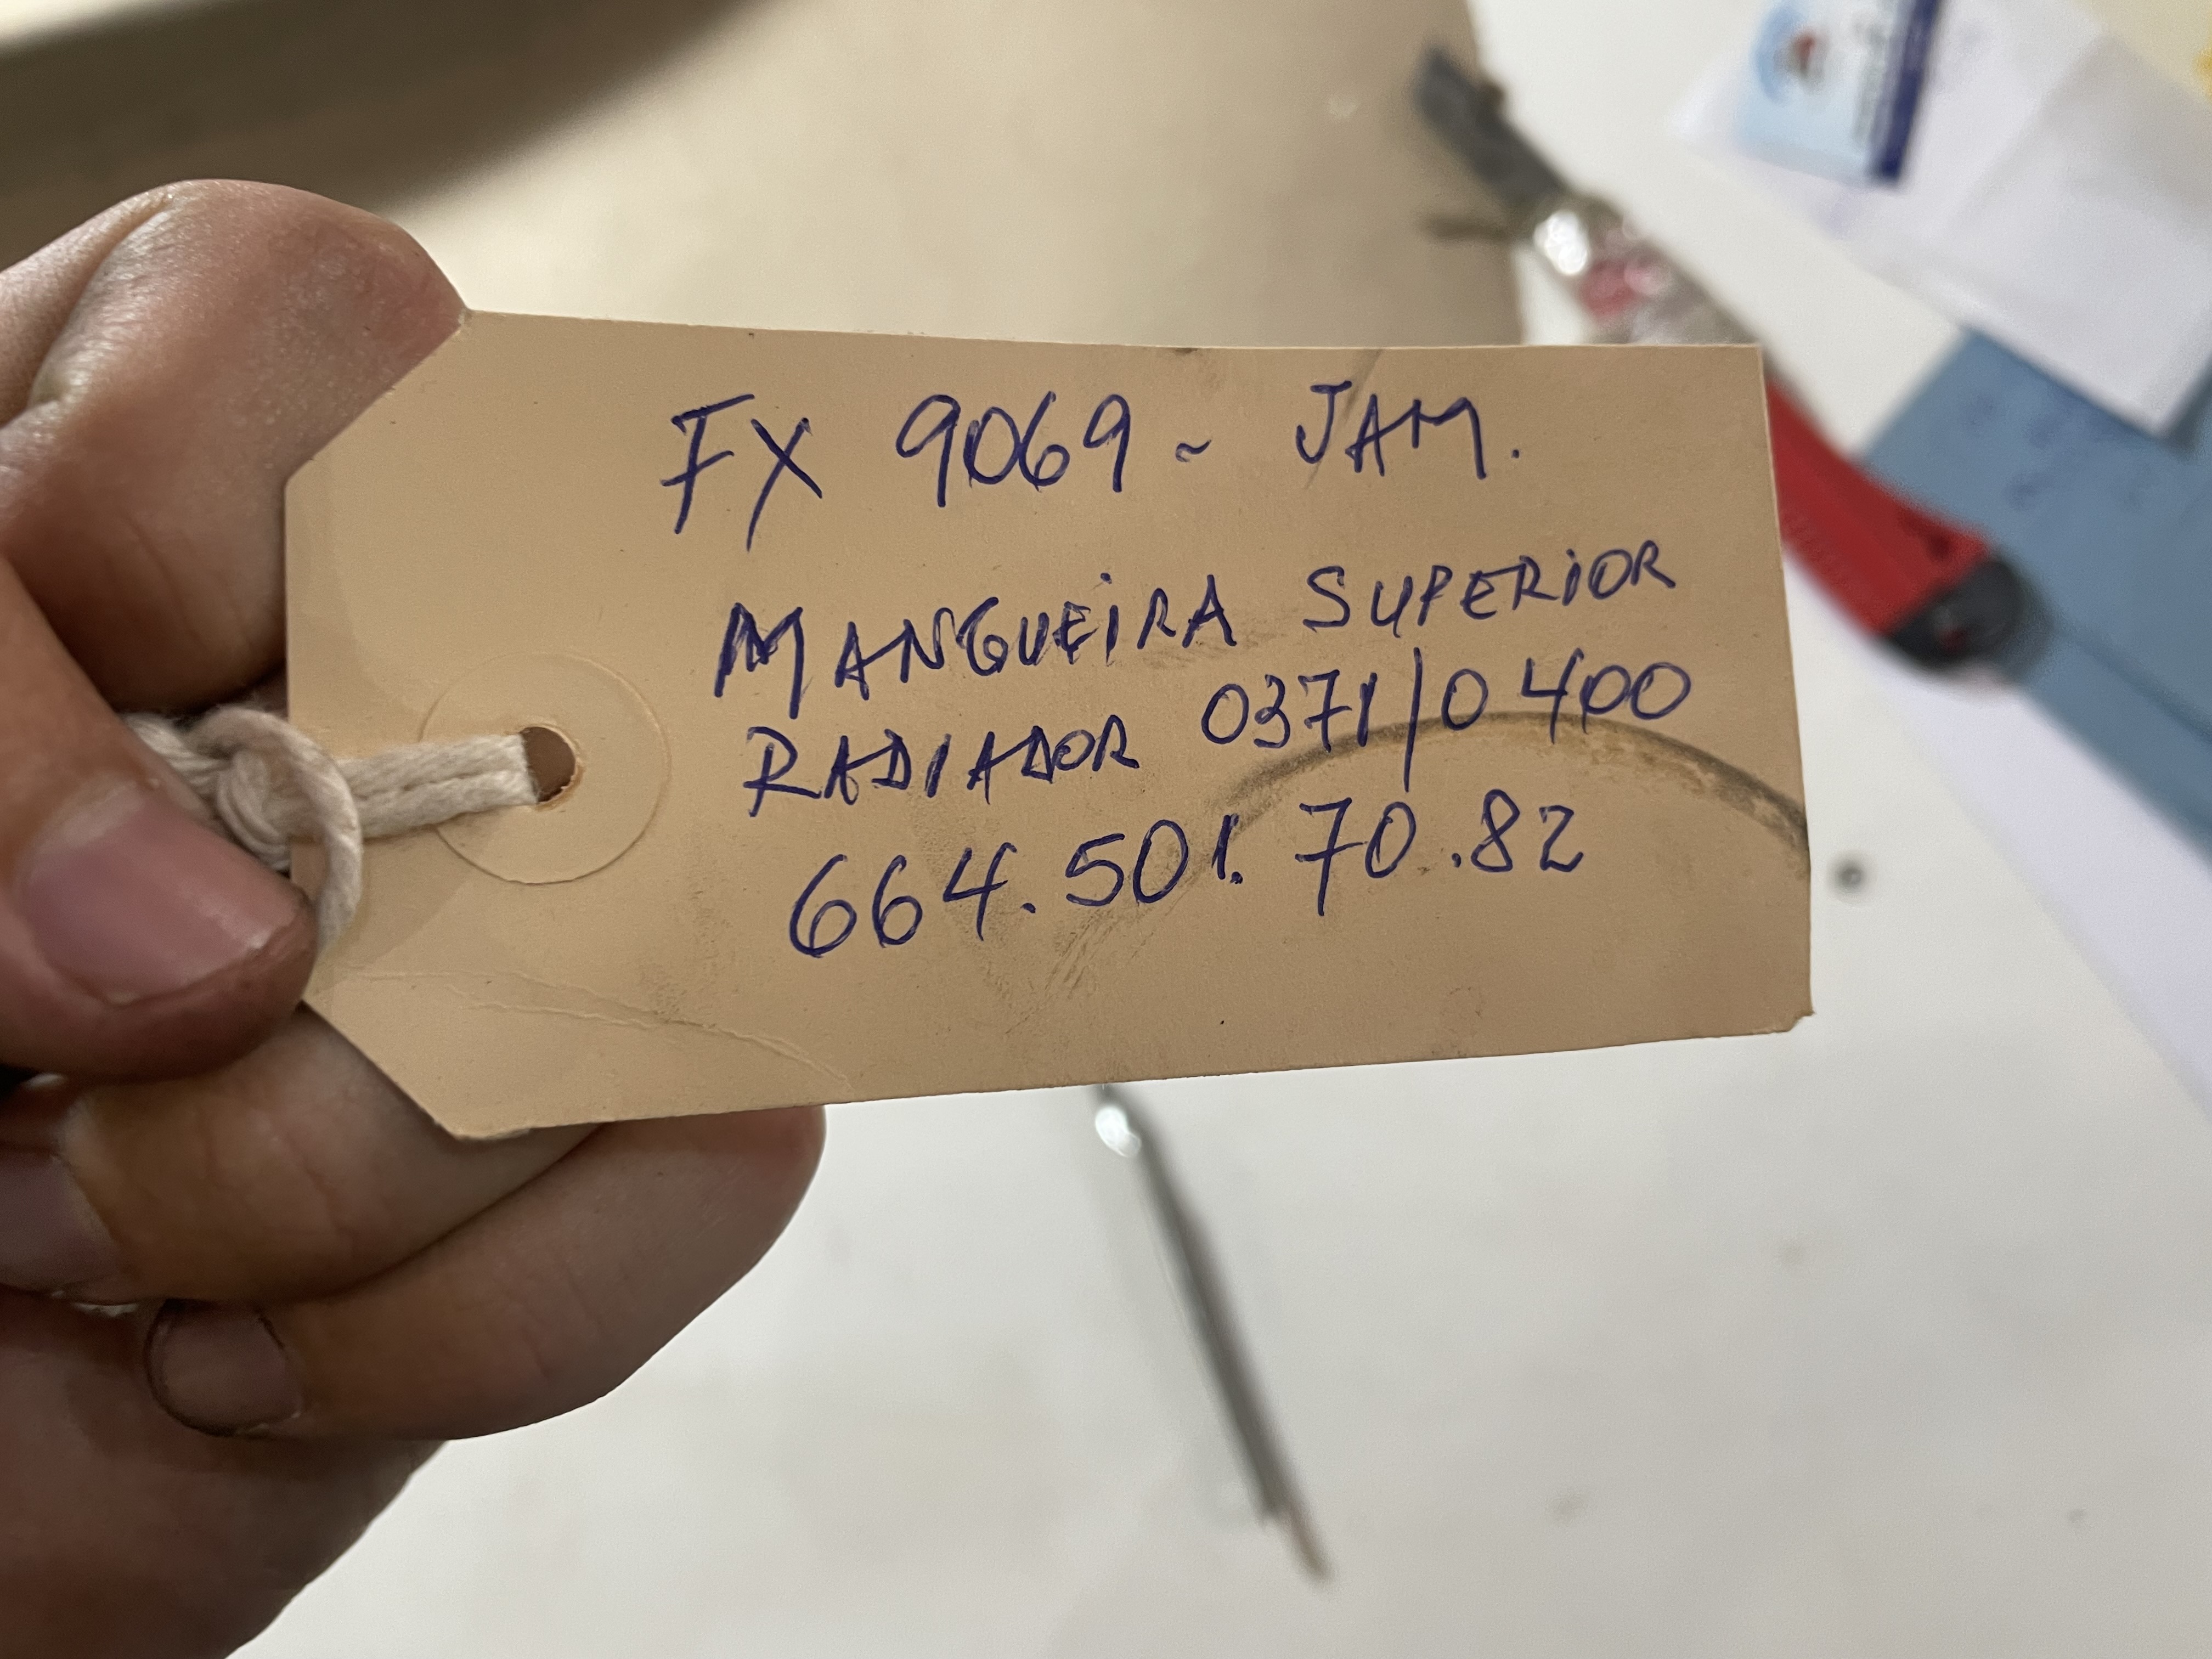 FX 9069 - JAM.
MANGUEIRA SUPERIOR
RADIADOR 0371/0400
664.501.70.82